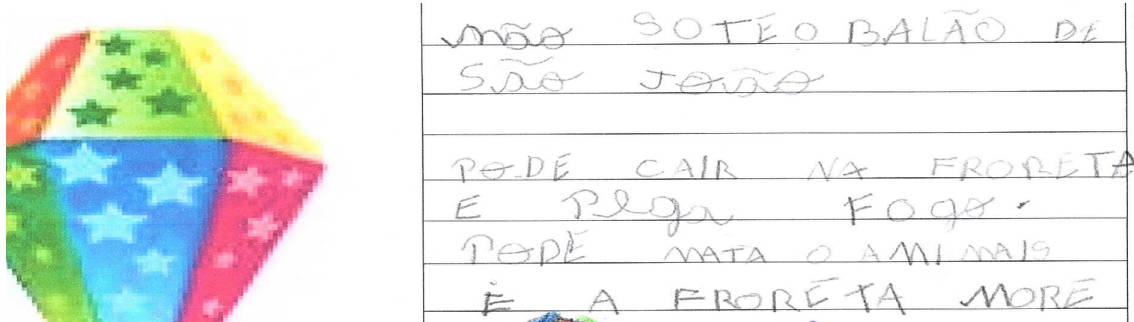 não SOTE O BALÃO DE
São João
PODE CAIR NA FRORETA
E Pega FOgo.
PODE MATA O AMIMAIS
E A FRORETA MORE